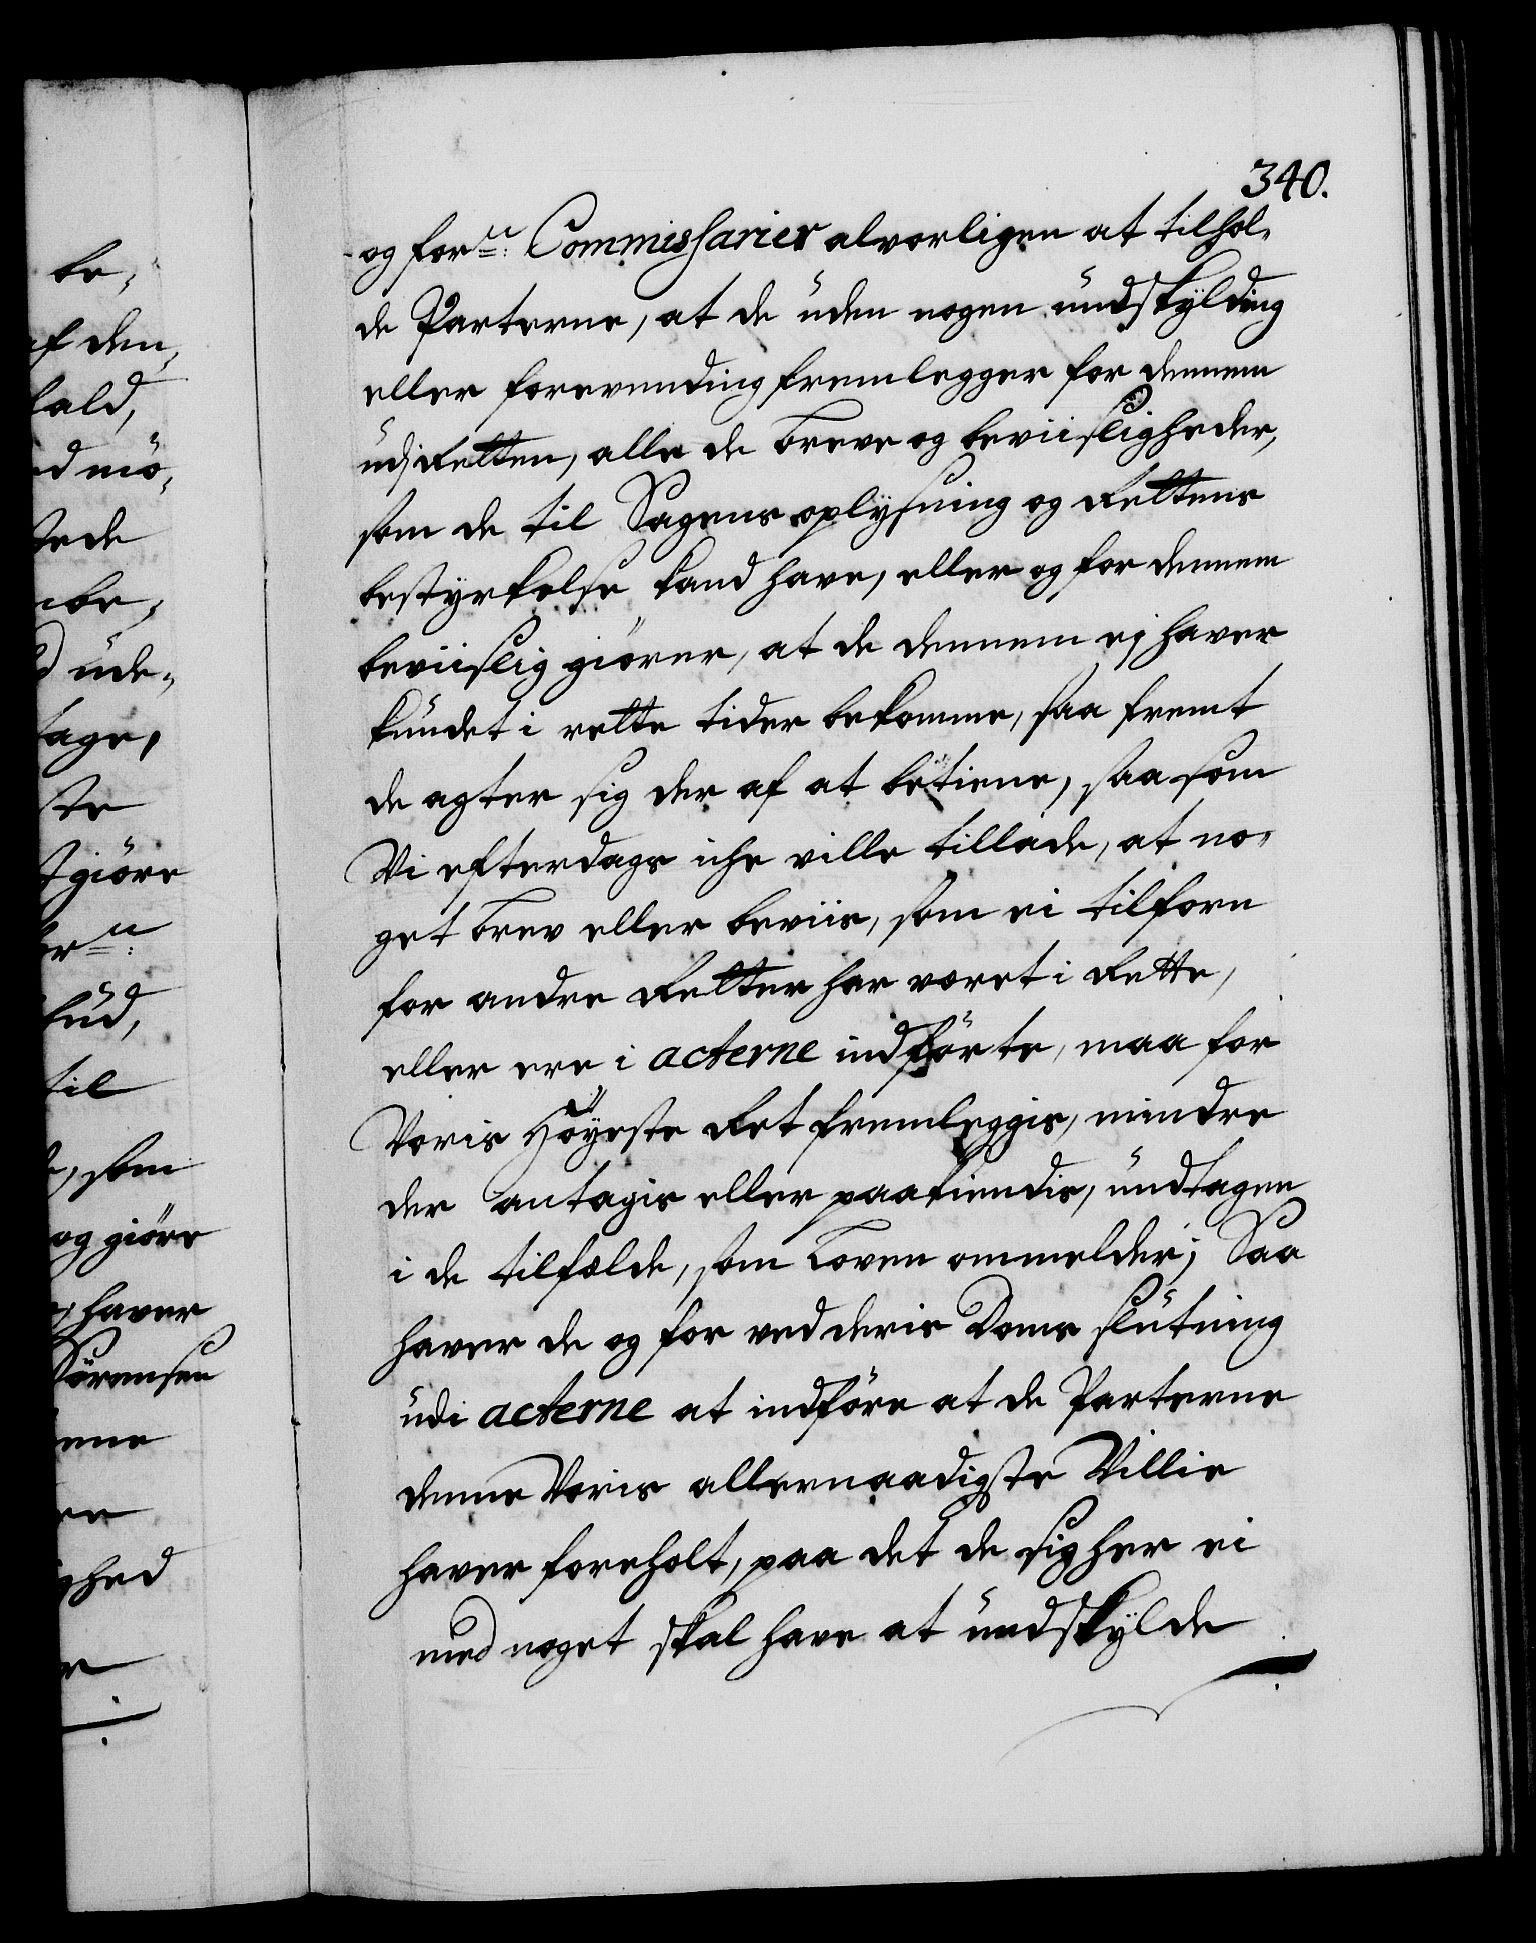 340.
og forne: Commissarier alvorligen at tilhol-
de Parterne, at de uden nogen undskylding
eller forevending fremlegger for dennem
udj Retten, alle de breve og beviisligheder,
som de til Sagens oplysning og Rettens
bestyrkelse kand have, eller og for dennem
beviislig giører, at de dennem ej haver
kundet i rette tider bekomme, saa fremt
de agter sig der af at betiene, saa som
Vi efterdags iche ville tillade, at no-
get brev eller beviis, som ei tilforn
for andre Retter har været i Rette,
eller ere i acterne indførte, maa for
Voris Høyeste Ret fremleggis, mindre
der antagis eller paakiendis, undtagen
i de tilfælde, som Loven ommelder; Saa
haver de og for ved deris Doms slutning
udi acterne at indføre at de Parterne
denne Voris allernaadigste Villie
haver foreholt, paa det de sig her ei
med noget skal have at undskylde
be-
af den-
fald,
ed mö-
stede
be-
d ude-
tage,
ste
t giöre
orne:
bud,
til
, som
og giöre
haver
Sörensen
ene
en
ghed